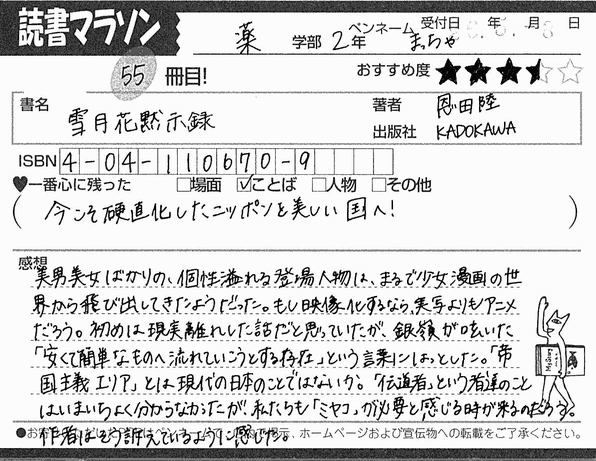 読書マラソン
薬 学部 2年 ペンネーム まっちゃ 受付日 年 月 日
55 冊目! おすすめ度 ★★★
書名 雪月花黙示録 著者 恩田陸
出版社 KADOKAWA
ISBN 4-04-110670-9
♥一番心に残った □場面 ☑ことば □人物 □その他
(今こそ硬直化したニッポンを美しい国へ!)
感想
美男美女ばかりの、個性溢れる登場人物は、まるで少女漫画の世
界から飛び出してきたようだった。もし映像化するなら、実写よりもアニメ
だろう。初めは現実離れした話だと思っていたが、銀嶺が呟いた
「安くて簡単なものへ流れていこうとする存在」という言葉にはっとした。「帝
国主義エリア」とは現代の日本のことではないか。「伝道者」という看護のこと
はいまいちよく分からなかったが、私たちも「ミヤコ」が必要と感じる時が来るのだろう。
作者はそう訴えているように感じた。
ホームページおよび宣伝物への転載をご了承ください。